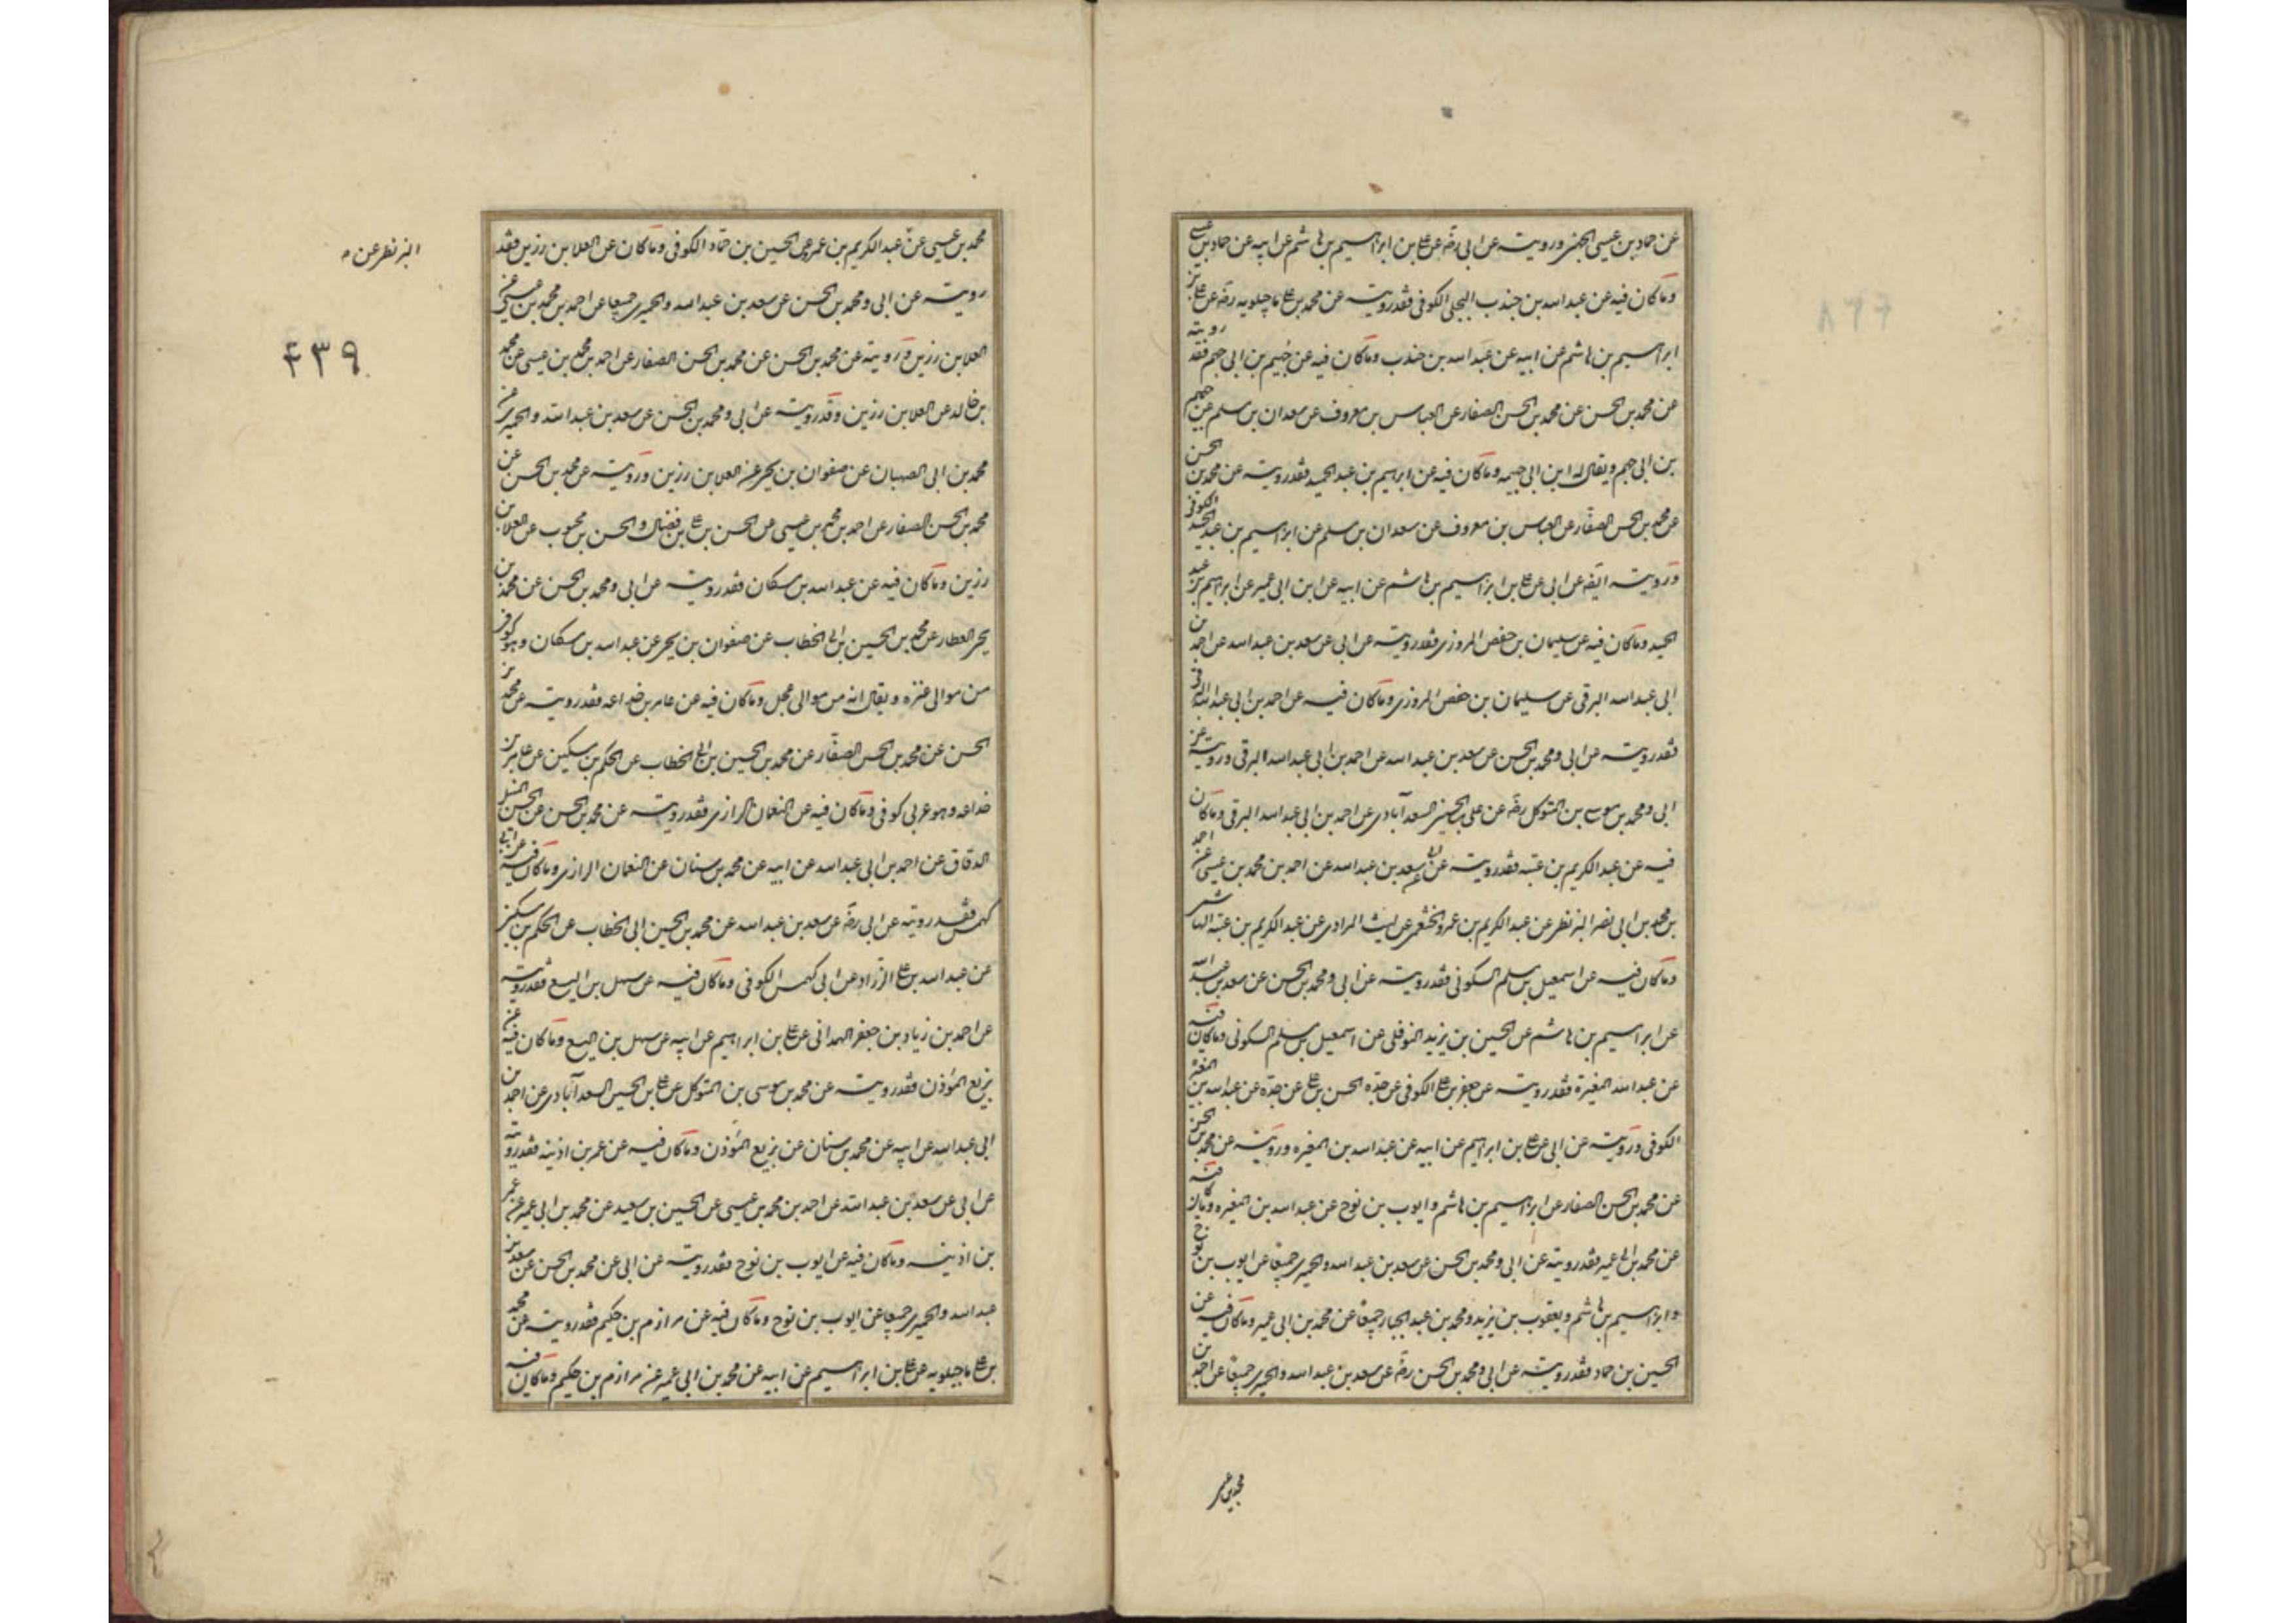 عن حماد بن عيسى الجهنى ورويته عن ابى رضه عن على بن ابراهيم بن هاشم عن ابيه عن حماد بن عيسى
وما كان فيه عن عبد الله بن جندب البجلى الكوفى فقد رويته عن محمد بن على ماجيلويه رضه عن على بن
ابراهيم بن هاشم عن ابيه عن عبد الله بن جندب وما كان فيه عن جهيم بن ابى جهم فقد رويته
عن محمد بن الحسن عن محمد بن الحسن الصفار عن العباس بن معروف عن سعدان بن مسلم عن جهيم
بن ابى جهم ويقال له ابن ابى جهيمه وما كان فيه عن ابراهيم بن عبد الحميد فقد رويته عن محمد بن الحسن
عن محمد بن الحسن الصفار عن العباس بن معروف عن سعدان بن مسلم عن ابراهيم بن عبد الحميد الكوفى
ورويته ايضه عن ابى عن على بن ابراهيم بن هاشم عن ابيه عن ابن ابى عمير عن ابراهيم بن عبد
الحميد وما كان فيه عن سليمان بن حفص المروزى فقد رويته عن ابى عن سعد بن عبد الله عن احمد بن
ابى عبد الله البرقى عن سليمان بن حفص المروزى وما كان فيه عن احمد بن ابى عبد الله البرقى
فقد رويته عن ابى ومحمد بن الحسن عن سعد بن عبد الله عن احمد بن ابى عبد الله البرقى ورويته عن
ابى ومحمد بن موسى بن المتوكل رضه عن على بن الحسين السعدآبادى عن احمد بن ابى عبد الله البرقى وما كان
فيه عن عبد الكريم بن عتبه فقد رويته عن ابى عن سعد بن عبد الله عن احمد بن محمد بن عيسى عن احمد
بن محمد بن ابى نصر البزنطى عن عبد الكريم بن عمرو الخثعمى عن ليث المرادى عن عبد الكريم بن عتبه الهاشمى
وما كان فيه عن اسمعيل بن مسلم السكونى فقد رويته عن ابى ومحمد بن الحسن عن سعد بن عبد الله
عن ابراهيم بن هاشم عن الحسين بن يزيد النوفلى عن اسمعيل بن مسلم السكونى وما كان فيه
عن عبد الله المغيرة فقد رويته عن جعفر بن على الكوفى عن جده الحسن بن على عن جده عن عبد الله بن المغيره
الكوفى ورويته عن ابى عن على بن ابراهيم عن ابيه عن عبد الله بن المغيره ورويته عن محمد بن الحسن
عن محمد بن الحسن الصفار عن ابراهيم بن هاشم وايوب بن نوح عن عبد الله بن المغيره وما كان فيه
عن محمد بن ابى عمير فقد رويته عن ابى ومحمد بن الحسن عن سعد بن عبد الله والحميرى جميعا عن ايوب بن نوح
وابراهيم بن هاشم ويعقوب بن يزيد ومحمد بن عبد الجبار جميعا عن محمد بن ابى عمير وما كان فيه عن
الحسين بن حماد فقد رويته عن ابى ومحمد بن الحسن رضه عن سعد بن عبد الله والحميرى جميعا عن احمد بن
محمد بن عيسى
محمد بن عيسى عن عبد الكريم بن عمرو عن الحسين بن حماد الكوفى وما كان عن العلا بن رزين فقد
رويته عن ابى ومحمد بن الحسن عن سعد بن عبد الله والحميرى جميعا عن احمد بن محمد بن عيسى عن
العلا بن رزين ورويته عن محمد بن الحسن عن محمد بن الحسن الصفار عن احمد بن محمد بن عيسى عن محمد
بن خالد عن العلا بن رزين وقد رويته عن ابى ومحمد بن الحسن عن سعد بن عبد الله والحميرى عن
محمد بن ابى الصهبان عن صفوان بن يحيى عن العلا بن رزين ورويته عن محمد بن الحسن عن
محمد بن الحسن الصفار عن احمد بن محمد بن عيسى عن الحسن بن على بن فضال والحسن بن محبوب عن العلا بن
رزين وما كان فيه عن عبد الله بن مسكان فقد رويته عن ابى ومحمد بن الحسن عن محمد بن
يحيى العطار عن محمد بن الحسين بن ابى الخطاب عن صفوان بن يحيى عن عبد الله بن مسكان وهو كوفى
من موالى عنزه ويقال انه من موالى عجل وما كان فيه عن عامر بن خداعه فقد رويته عن محمد بن
الحسن عن محمد بن الحسن الصفار عن محمد بن الحسين بن ابى الخطاب عن الحكم بن مسكين عن عامر بن
خداعه وهو عربى كوفى وما كان فيه عن النعمان الرازى فقد رويته عن محمد بن الحسن عن الحسن المتيل
الدقاق عن احمد بن ابى عبد الله عن ابيه عن محمد بن سنان عن النعمان الرازى وما كان فيه عن ابى
كهمس فقد رويته عن ابى رضه عن سعد بن عبد الله عن محمد بن الحسين ابى الخطاب عن الحكم بن مسكين
عن عبد الله بن على الزراد عن ابى كهمس الكوفى وما كان فيه عن سهل بن اليسع فقد رويته
عن احمد بن زياد بن جعفر الهمدانى عن على بن ابراهيم عن ابيه عن سهل بن اليسع وما كان فيه عن
بزيع المؤذن فقد رويته عن محمد بن موسى بن المتوكل عن على بن الحسين السعدآبادى عن احمد بن
ابى عبد الله عن ابيه عن محمد بن سنان عن بزيع المؤذن وما كان فيه عن عمر بن اذينه فقد رويته
عن ابى عن سعد بن عبد الله عن احمد بن محمد بن عيسى عن الحسين بن سعيد عن محمد بن ابى عمير عن عمر
بن اذينه وما كان فيه عن ايوب بن نوح فقد رويته عن ابى عن محمد بن الحسن عن سعد بن
عبد الله والحميرى جميعا عن ايوب بن نوح وما كان فيه عن مرازم بن حكيم فقد رويته عن محمد
بن على ماجيلويه عن على بن ابراهيم عن ابيه عن محمد بن ابى عمير عن مرازم بن حكيم وما كان فيه
البزنطى عن
۴۳۹